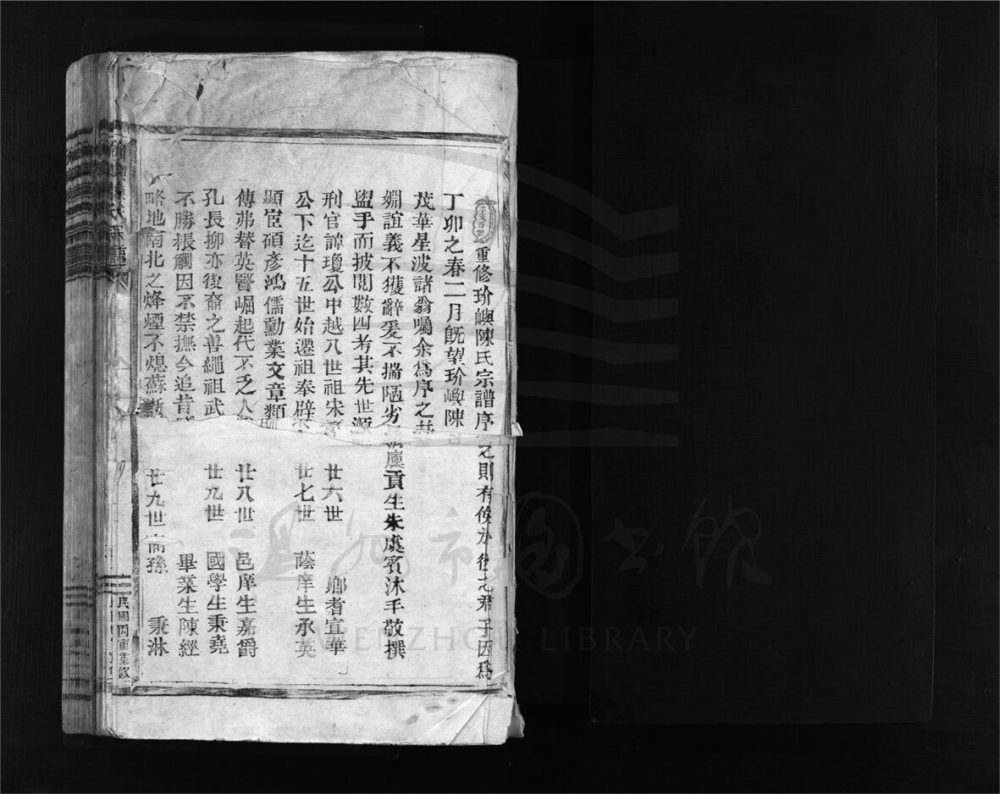 重修玠嶼陳氏宗譜序
丁卯之春二月既望玠嶼陳
茂華星波諸翁囑余爲序之
婣誼義不獲辭爰不揣陋劣
盥手而披閱數四考其先世源
刑官諱瓊公中越八世祖宋
公下迄十五世始遷祖奉辟
顯宦碩彥鴻儒勳業文章類
傳弗替英賢崛起代不乏人
孔長抑亦後裔之善繩祖武
不勝根觸因不禁撫今追昔
略地南北之烽煙不熄蘇浙
之則有俟於後之君子因爲
廩貢生朱處賓沐手敬撰
廿六世 鄉耆宜華
廿七世 蔭庠生永英
廿八世 邑庠生嘉爵
廿九世 國學生秉堯
畢業生陳經
廿九世裔孫 秉淋
WENZHOU LIBRARY